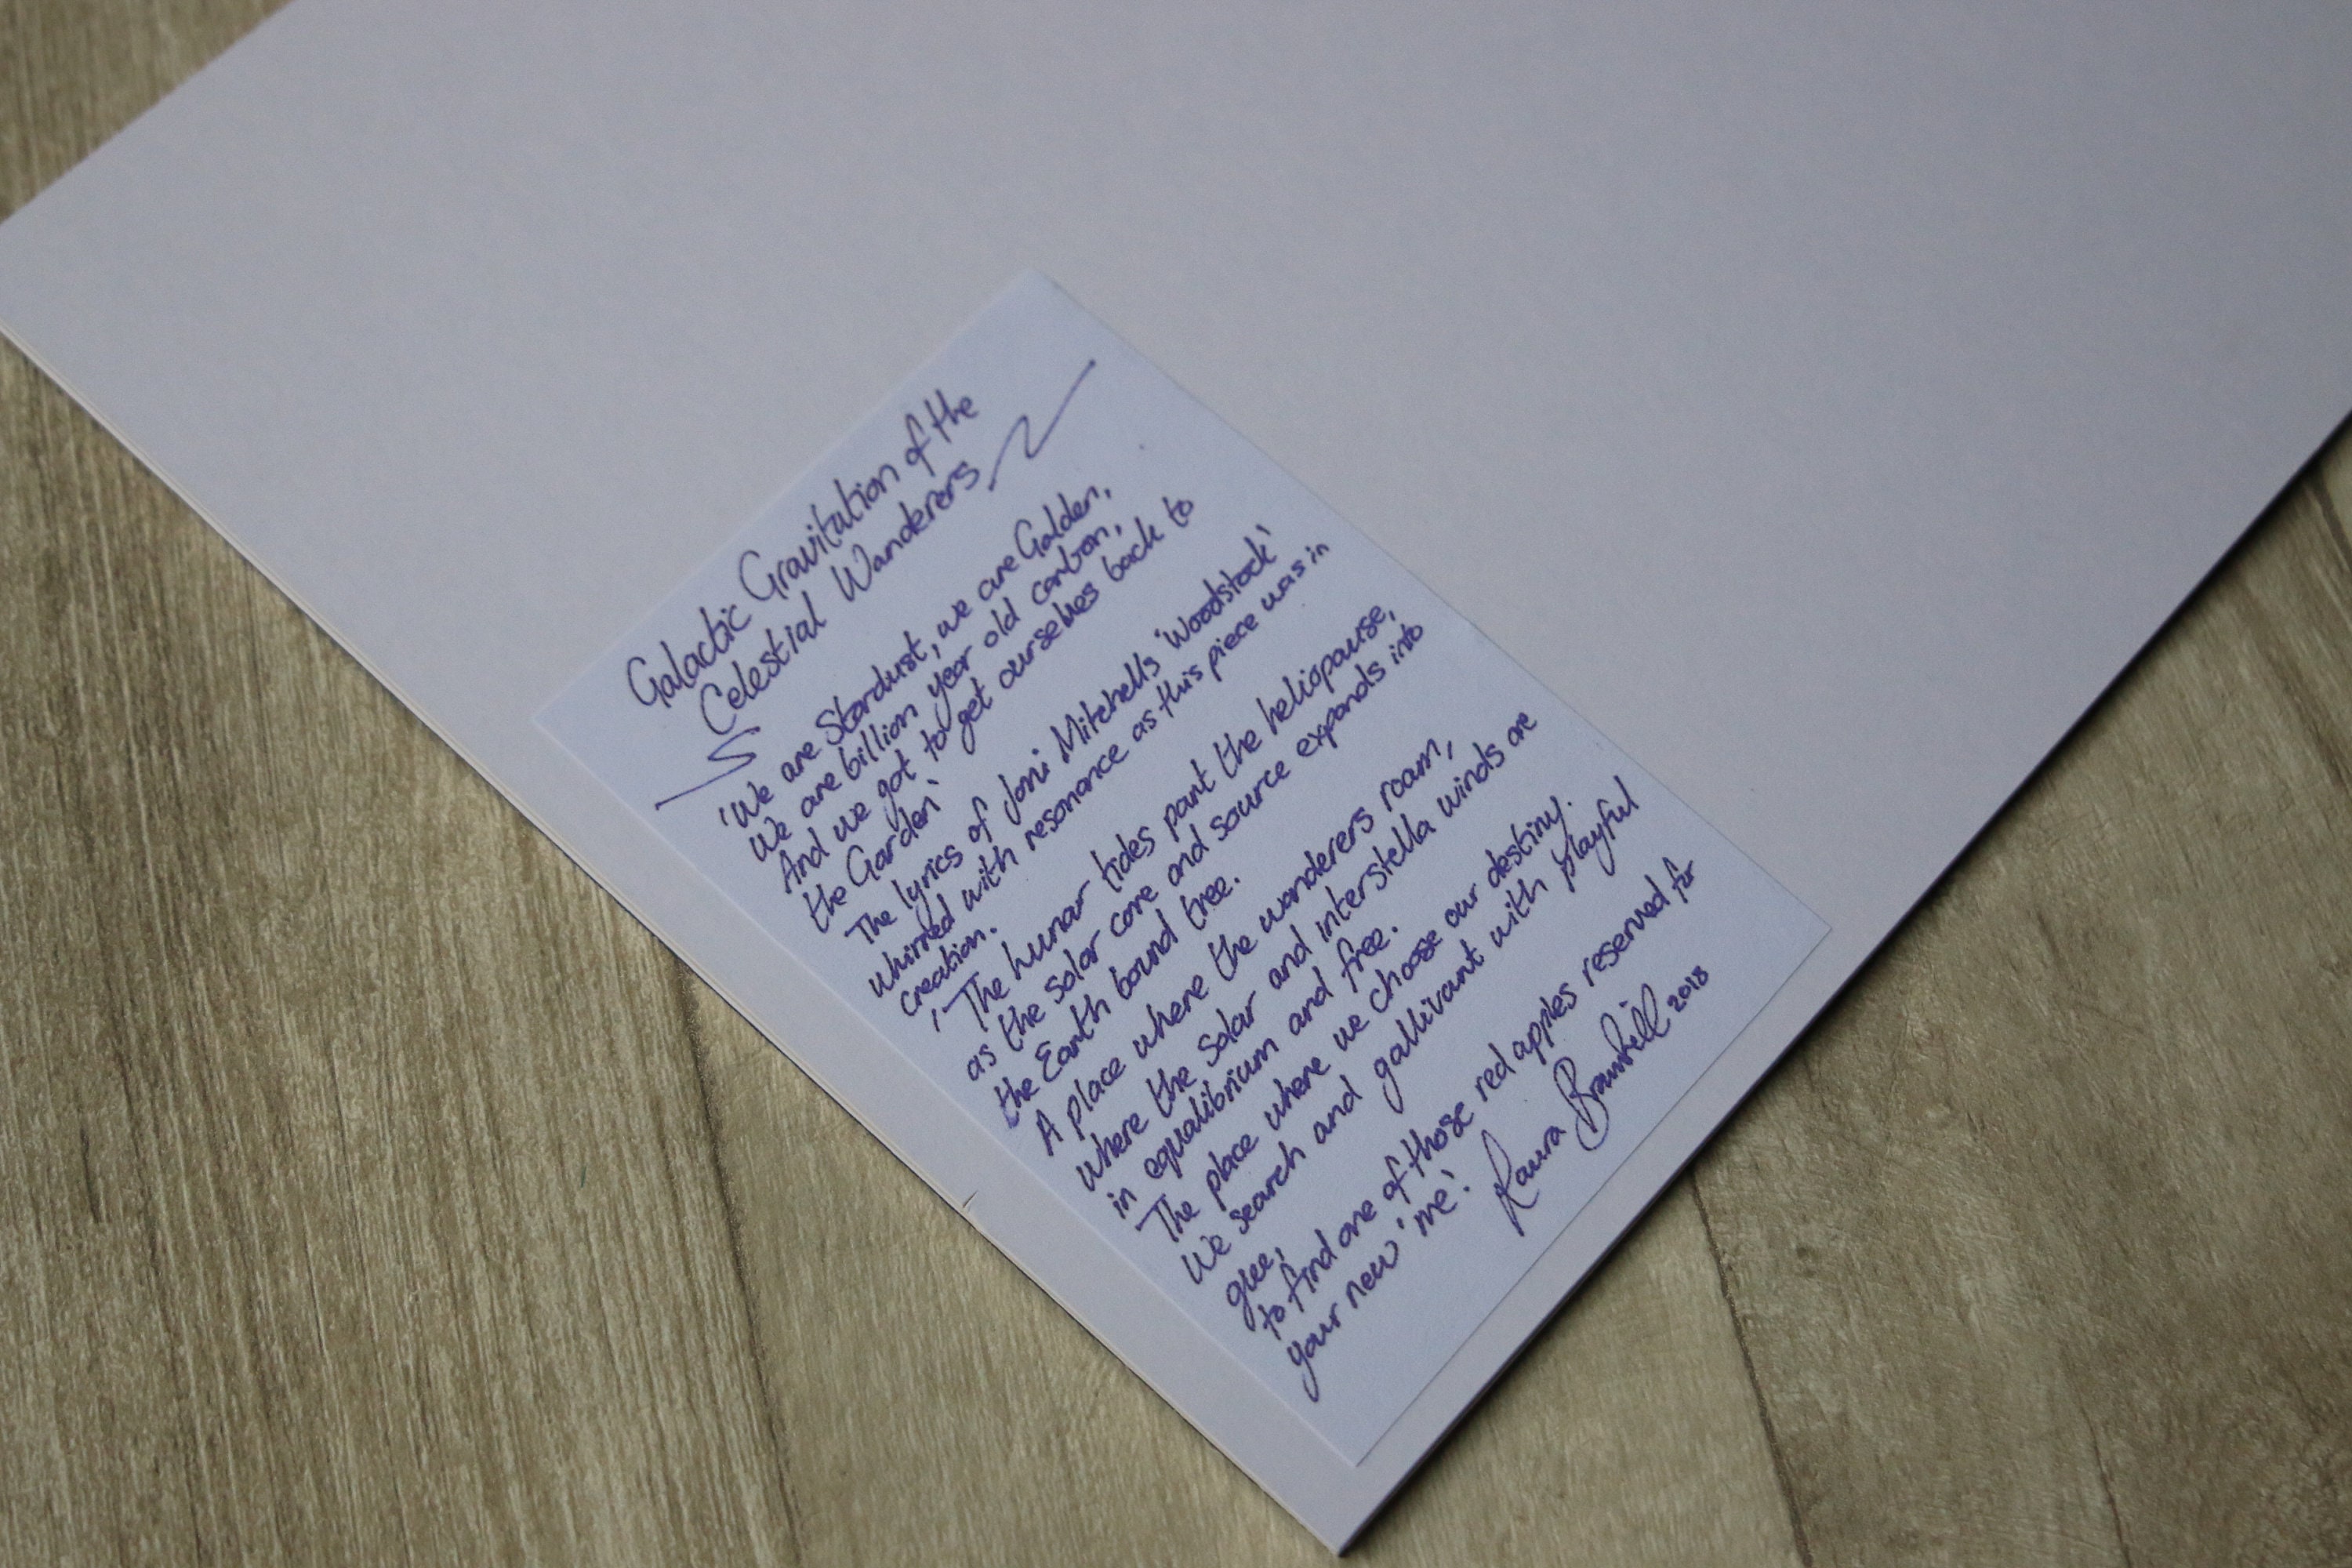 Galactic Gravitation of the
Celestial Wanderers
'We are Stardust, we are Golden,
We are billion year old carbon,
And we got to get ourselves back to
the Garden'
The lyrics of Joni Mitchells 'Woodstock'
whirred with resonance as this piece was in
creation.
'The lunar tides part the heliopause,
as the solar core and source expands into
the Earth bound tree.
A place where the wanderers roam,
where the solar and interstella winds are
in equalibrium and free.
The place where we choose our destiny.
We search and gallivant with playful
glee,
to find one of those red apples reserved for
your new 'me'.
Laura 2018